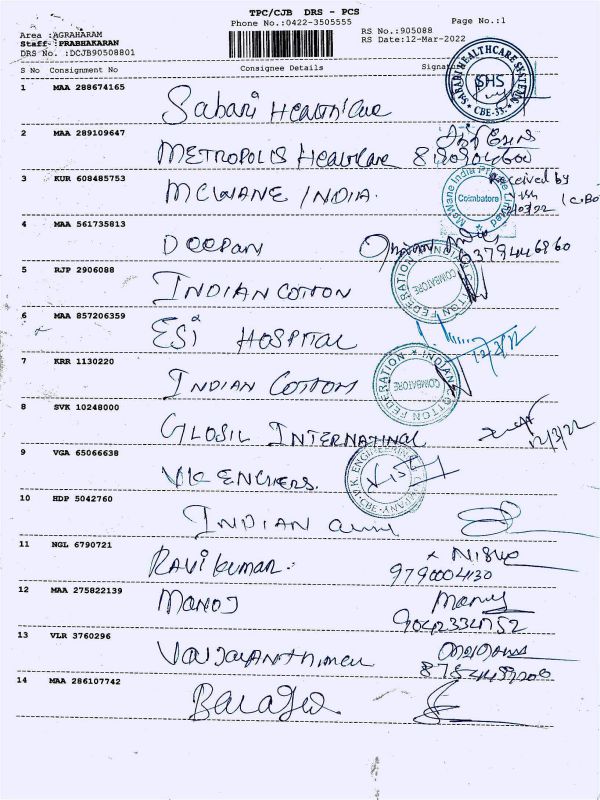 TPC/CJB DRS - PCS
Phone No.:0422-3505555 Page No.:1
Area :AGRAHARAM RS No.:905088
Staff- PRABHAKARAN RS Date:12-Mar-2022
DRS No. :DCJB90508801
S No Consignment No Consignee Details Signature
SABARI HEALTHCARE SYSTEMS SHS CBE-33
1 MAA 288674165 Sabari Healthcare
2 MAA 289109647 METROPOLIS Healthcare
3 KUR 608485753 MCWANE INDIA. Received by
McWane India Private Limited Coimbatore
4 MAA 561735813 DEEPAN
5 RJP 2906088 INDIAN COTTON
INDIAN COTTON FEDERATION COIMBATORE
6 MAA 857206359 ESI HOSPITAL 12/3/22
7 KRR 1130220 INDIAN COTTON
INDIAN COTTON FEDERATION COIMBATORE
8 SVK 10248000 GLOSIL INTERNATIONAL 12/3/22
9 VGA 65066638 V.K ENGHERS.
V.K. ENGINEERING COMPANY CBE
10 HDP 5042760 INDIAN
11 NGL 6790721 RAVI KUMAR. 9790004130
12 MAA 275822139 MANOJ Manoj
9042334752
13 VLR 3760296
14 MAA 286107742